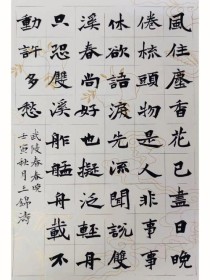 風住塵香花已盡日晚
倦梳頭物是人非事事
休欲語淚先流聞說雙
溪春尚好也擬泛輕舟
只恐雙溪舴艋舟載不
動許多愁
武陵春春晚
壬寅秋月王錦濤